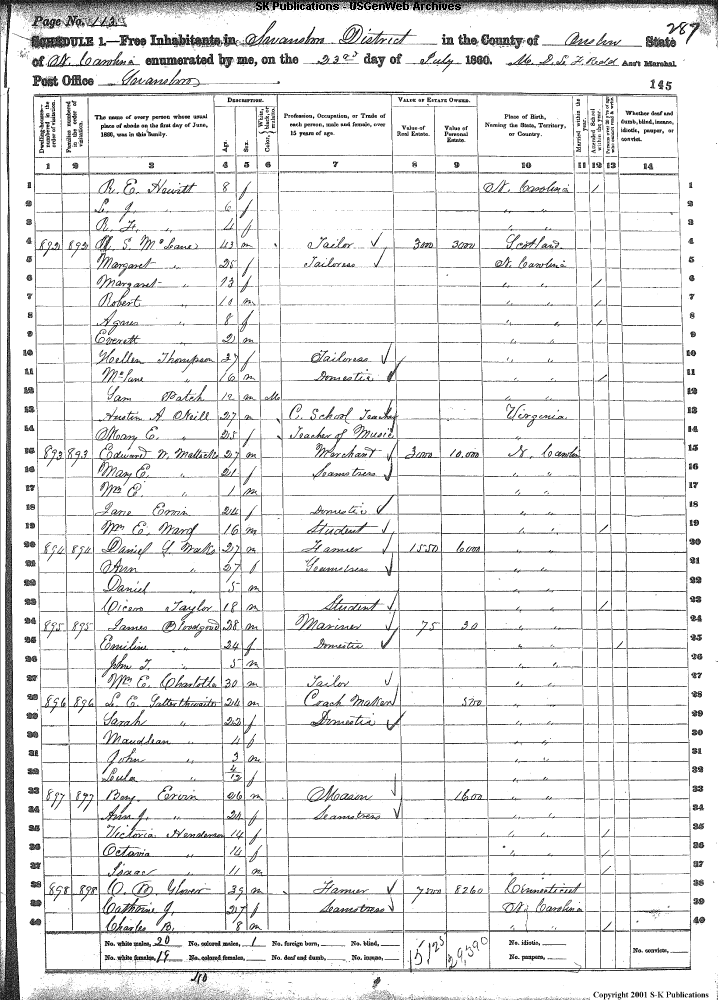 SK Publications - USGenWeb Archives
Page No. 113
287
SCHEDULE 1.—Free Inhabitants in Swansboro District in the County of Onslow State
of N. Carolina enumerated by me, on the 23rd day of July 1860. Ass't Marshal
Post Office Swansboro
145
DESCRIPTION. VALUE OF ESTATE OWNED.
The name of every person whose usual place of abode on the first day of June, 1860, was in this family.
Age. Sex.
Profession, Occupation, or Trade of each person, male and female, over 15 years of age.
Value of Real Estate. Value of Personal Estate.
Place of Birth, Naming the State, Territory, or Country.
Married within the year. Attended School within the year.
Whether deaf and dumb, blind, insane, idiotic, pauper, or convict.
1 2 3 4 5 6 7 8 9 10 11 12 13 14
1 R. E. Hewitt 8 f N. Carolina / 1
2 L. J. 6 f " " 2
3 R. F. " 4 f " " 3
4 892 892 S. McLane 43 m Tailor 3000 3000 Scotland 4
5 Margaret " 25 f Tailoress N. Carolina 5
6 Margaret " 13 f " " / 6
7 Robert " 10 m " " / 7
8 Agnes " 8 f " " / 8
9 Everett " 2 m " " 9
10 Hellen Thompson 37 f Tailoress " " 10
11 McLane " 16 m Domestic " " / 11
12 Sam Patch 12 m Mu " " 12
13 Austin A. ONeill 27 m C. School Teacher Virginia 13
14 Mary E. " 25 f Teacher of Music " 14
15 893 893 Edward W. Mattocks 27 m Merchant 3000 10,000 N. Carolin 15
16 Mary E. " 21 f Seamstress " " 16
17 Wm E. " 1 m " " 17
18 Jane Ervin 24 f Domestic " " 18
19 Wm E. Ward 16 m Student " " / 19
20 894 894 Daniel Y. Marks 27 m Farmer 1550 6000 " " 20
21 Ann " 27 f Seamstress " " 21
22 Daniel " 5 m " " 22
23 Cicero Taylor 18 m Student " " / 23
24 895 895 James Bloodgood 28 m Mariner 75 30 " " 24
25 Emiline " 24 f Domestic " " / 25
26 John T. " 5 m " " 26
27 Wm E. Charlotte 30 m Tailor " " 27
28 896 896 L. E. Satterthwaite 24 m Coach Maker 500 " " 28
29 Sarah " 22 f Domestic " " 29
30 Maudlean " 4 f " " 30
31 John " 3 m " " 31
32 Lula " 4/12 f " " 32
33 897 897 Benj. Ervin 26 m Mason 1600 " " 33
34 Ann J. " 24 f Seamstress " " 34
35 Victoria Henderson 14 f " " / 35
36 Octavia " 14 f " " / 36
37 Isaac " 11 m " " / 37
38 898 898 O. B. Glover 39 m Farmer 7500 8260 Connecticut 38
39 Catharine J. 27 f Seamstress N. Carolina 39
40 Charles B. 8 m " " / 40
No. white males, 20 No. colored males, 1 No. foreign born, No. blind, 15,125 29,390 No. idiotic, No. convicts,
No. white females, 19 No. colored females, No. deaf and dumb, No. insane, No. paupers,
40
Copyright 2001 S-K Publications